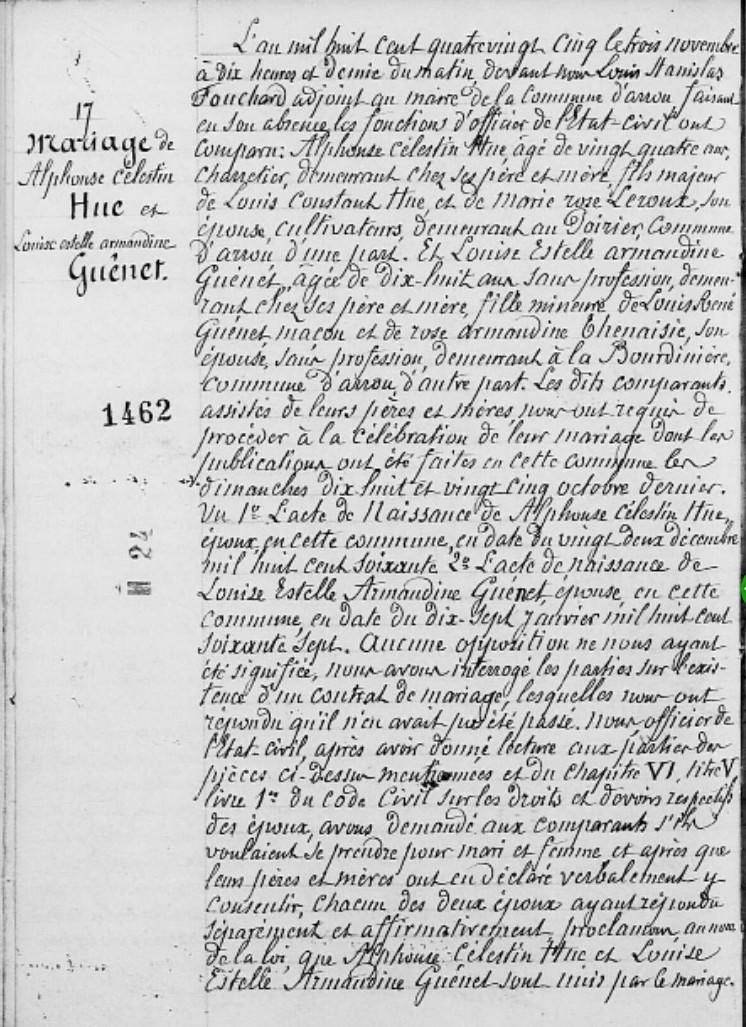 17
Mariage de
Alphonse Célestin
Hue et
Louise estelle armandine
Guénet.
1462
L'an mil huit cent quatrevingt Cinq le trois novembre
à dix heures et demie du matin, devant nous Louis Stanislas
Fouchard adjoint au maire de la Commune d'arrou faisant
en son absence les fonctions d'officier de l'Etat-Civil ont
Comparu: Alphonse Célestin Hue, agé de vingt quatre ans,
Charretier, demeurant chez ses père et mère, fils majeur
de Louis Constant Hue, et de Marie rose Leroux, son
épouse, cultivateurs, demeurant au Poirier, Commune
d'arrou d'une part. Et Louise Estelle armandine
Guénet, agée de dix-huit ans sans profession, demeu-
rant chez ses père et mère, fille mineure de Louis René
Guénet maçon et de rose armandine Thenaisie, son
épouse, sans profession, demeurant à la Bourdinière,
Commune d'arrou, d'autre part. Les dits comparants,
assistés de leurs pères et mères, nous ont requis de
procéder à la célébration de leur mariage dont les
publications ont été faites en cette commune les
dimanches dix huit et vingt cinq octobre dernier.
Vu 1º L'acte de Naissance de Alphonse Célestin Hue,
époux, en cette commune, en date du vingt deux décembre
mil huit cent soixante 2º L'acte de naissance de
Louise Estelle Armandine Guénet épouse, en cette
commune, en date du dix-sept janvier mil huit cent
soixante sept. Aucune opposition ne nous ayant
été signifiée, nous avons interrogé les parties sur l'exis-
tence d'un contrat de mariage, lesquelles nous ont
répondu qu'il n'en avait pas été passé. Nous officier de
l'Etat-civil, après avoir donné lecture aux parties des
pièces ci-dessus mentionnées et du Chapitre VI, titre V
livre 1er du Code Civil sur les droits et devoirs respectifs
des époux, avons demandé aux comparants s'ils
voulaient se prendre pour mari et femme et après que
leurs pères et mères ont eu déclaré verbalement y
Consentir, Chacun des deux époux ayant répondu
séparément et affirmativement, proclamons au nom
de la loi, que Alphonse Célestin Hue et Louise
Estelle Armandine Guénet sont unis par le mariage.